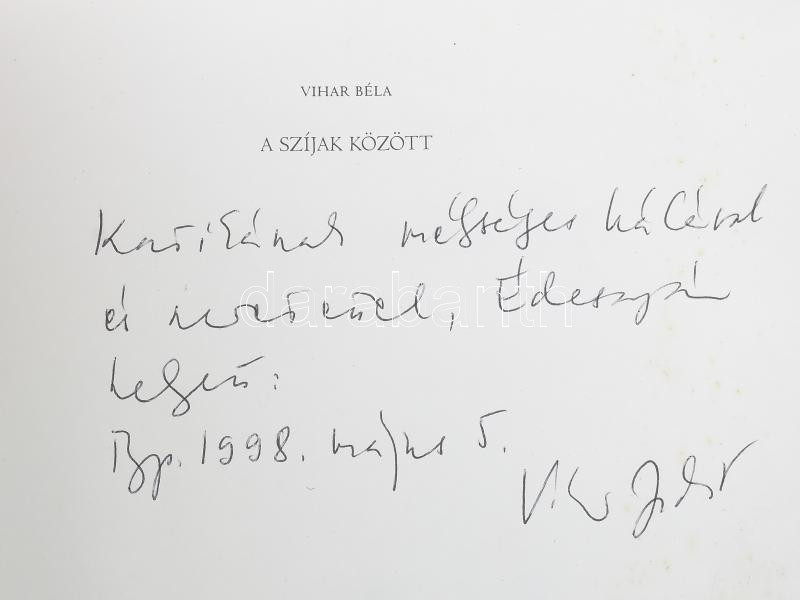 VIHAR BÉLA
A SZÍJAK KÖZÖTT
Katikának mélységes hálával
és szeretettel, Édesapám
helyett:
Bp. 1998. május 5.
Vihar Judit
darabanth